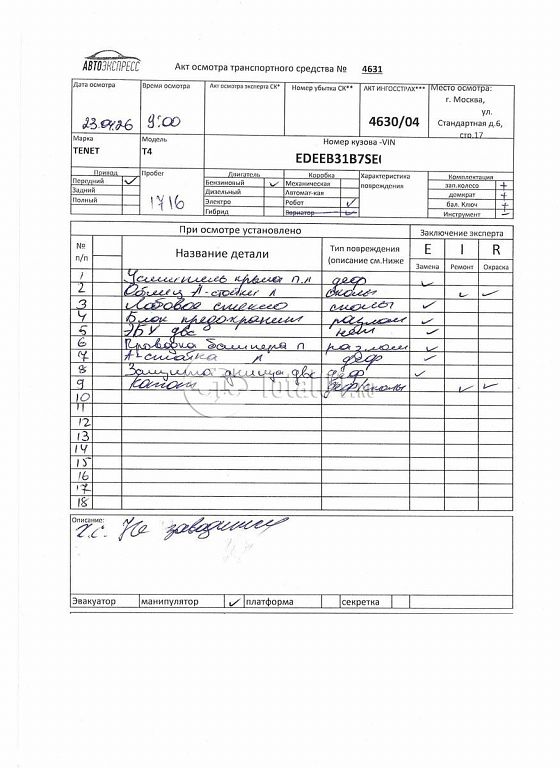 АВТОЭКСПРЕСС
Акт осмотра транспортного средства № 4631
Дата осмотра
Время осмотра
Акт осмотра эксперта СК*
Номер убытка СК**
АКТ ИНГОССТРАХ***
Место осмотра:
г. Москва,
ул.
Стандартная д.6,
стр.17
23.04.26
9:00
4630/04
Марка
Модель
Номер кузова -VIN
TENET
T4
EDEEB31B7SE
Привод
Пробег
Двигатель
Коробка
Характеристика
повреждения
Комплектация
Передний ✓
Бензиновый ✓
Механическая
зап.колесо +
Задний
Дизельный
Автомат-кая
домкрат +
Полный
1716
Электро
Робот ✓
бал. Ключ +
Гибрид
Вариатор
Инструмент –
При осмотре установлено
Заключение эксперта
№
п/п
Название детали
Тип повреждения
(описание см.Ниже
E I R
Замена Ремонт Окраска
1 Усилитель крыла п.л деф ✓
2 Облиц А-стойки л сколы ✓ ✓
3 Лобовое стекло сколы ✓
4 Блок предохранит разлом ✓
5 ЭБУ двс нет ✓
6 Проводка бампера п разлом ✓
7 А-стойка л деф ✓
8 Защита днища двс деф ✓
9 Капот деф/сколы ✓ ✓
10
11
12
13
14
15
16
17
18
Total
Описание:
х.с. Не заводится
Эвакуатор манипулятор ✓ платформа секретка